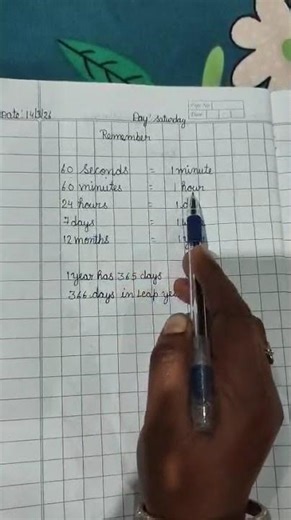 Date: 14/3/26
Day: Saturday
Remember
60 Seconds = 1 minute
60 minutes = 1 hour
24 hours = 1 d
7 days = 1
12 months = 1
1 year has 365 days
366 days in Leap ye